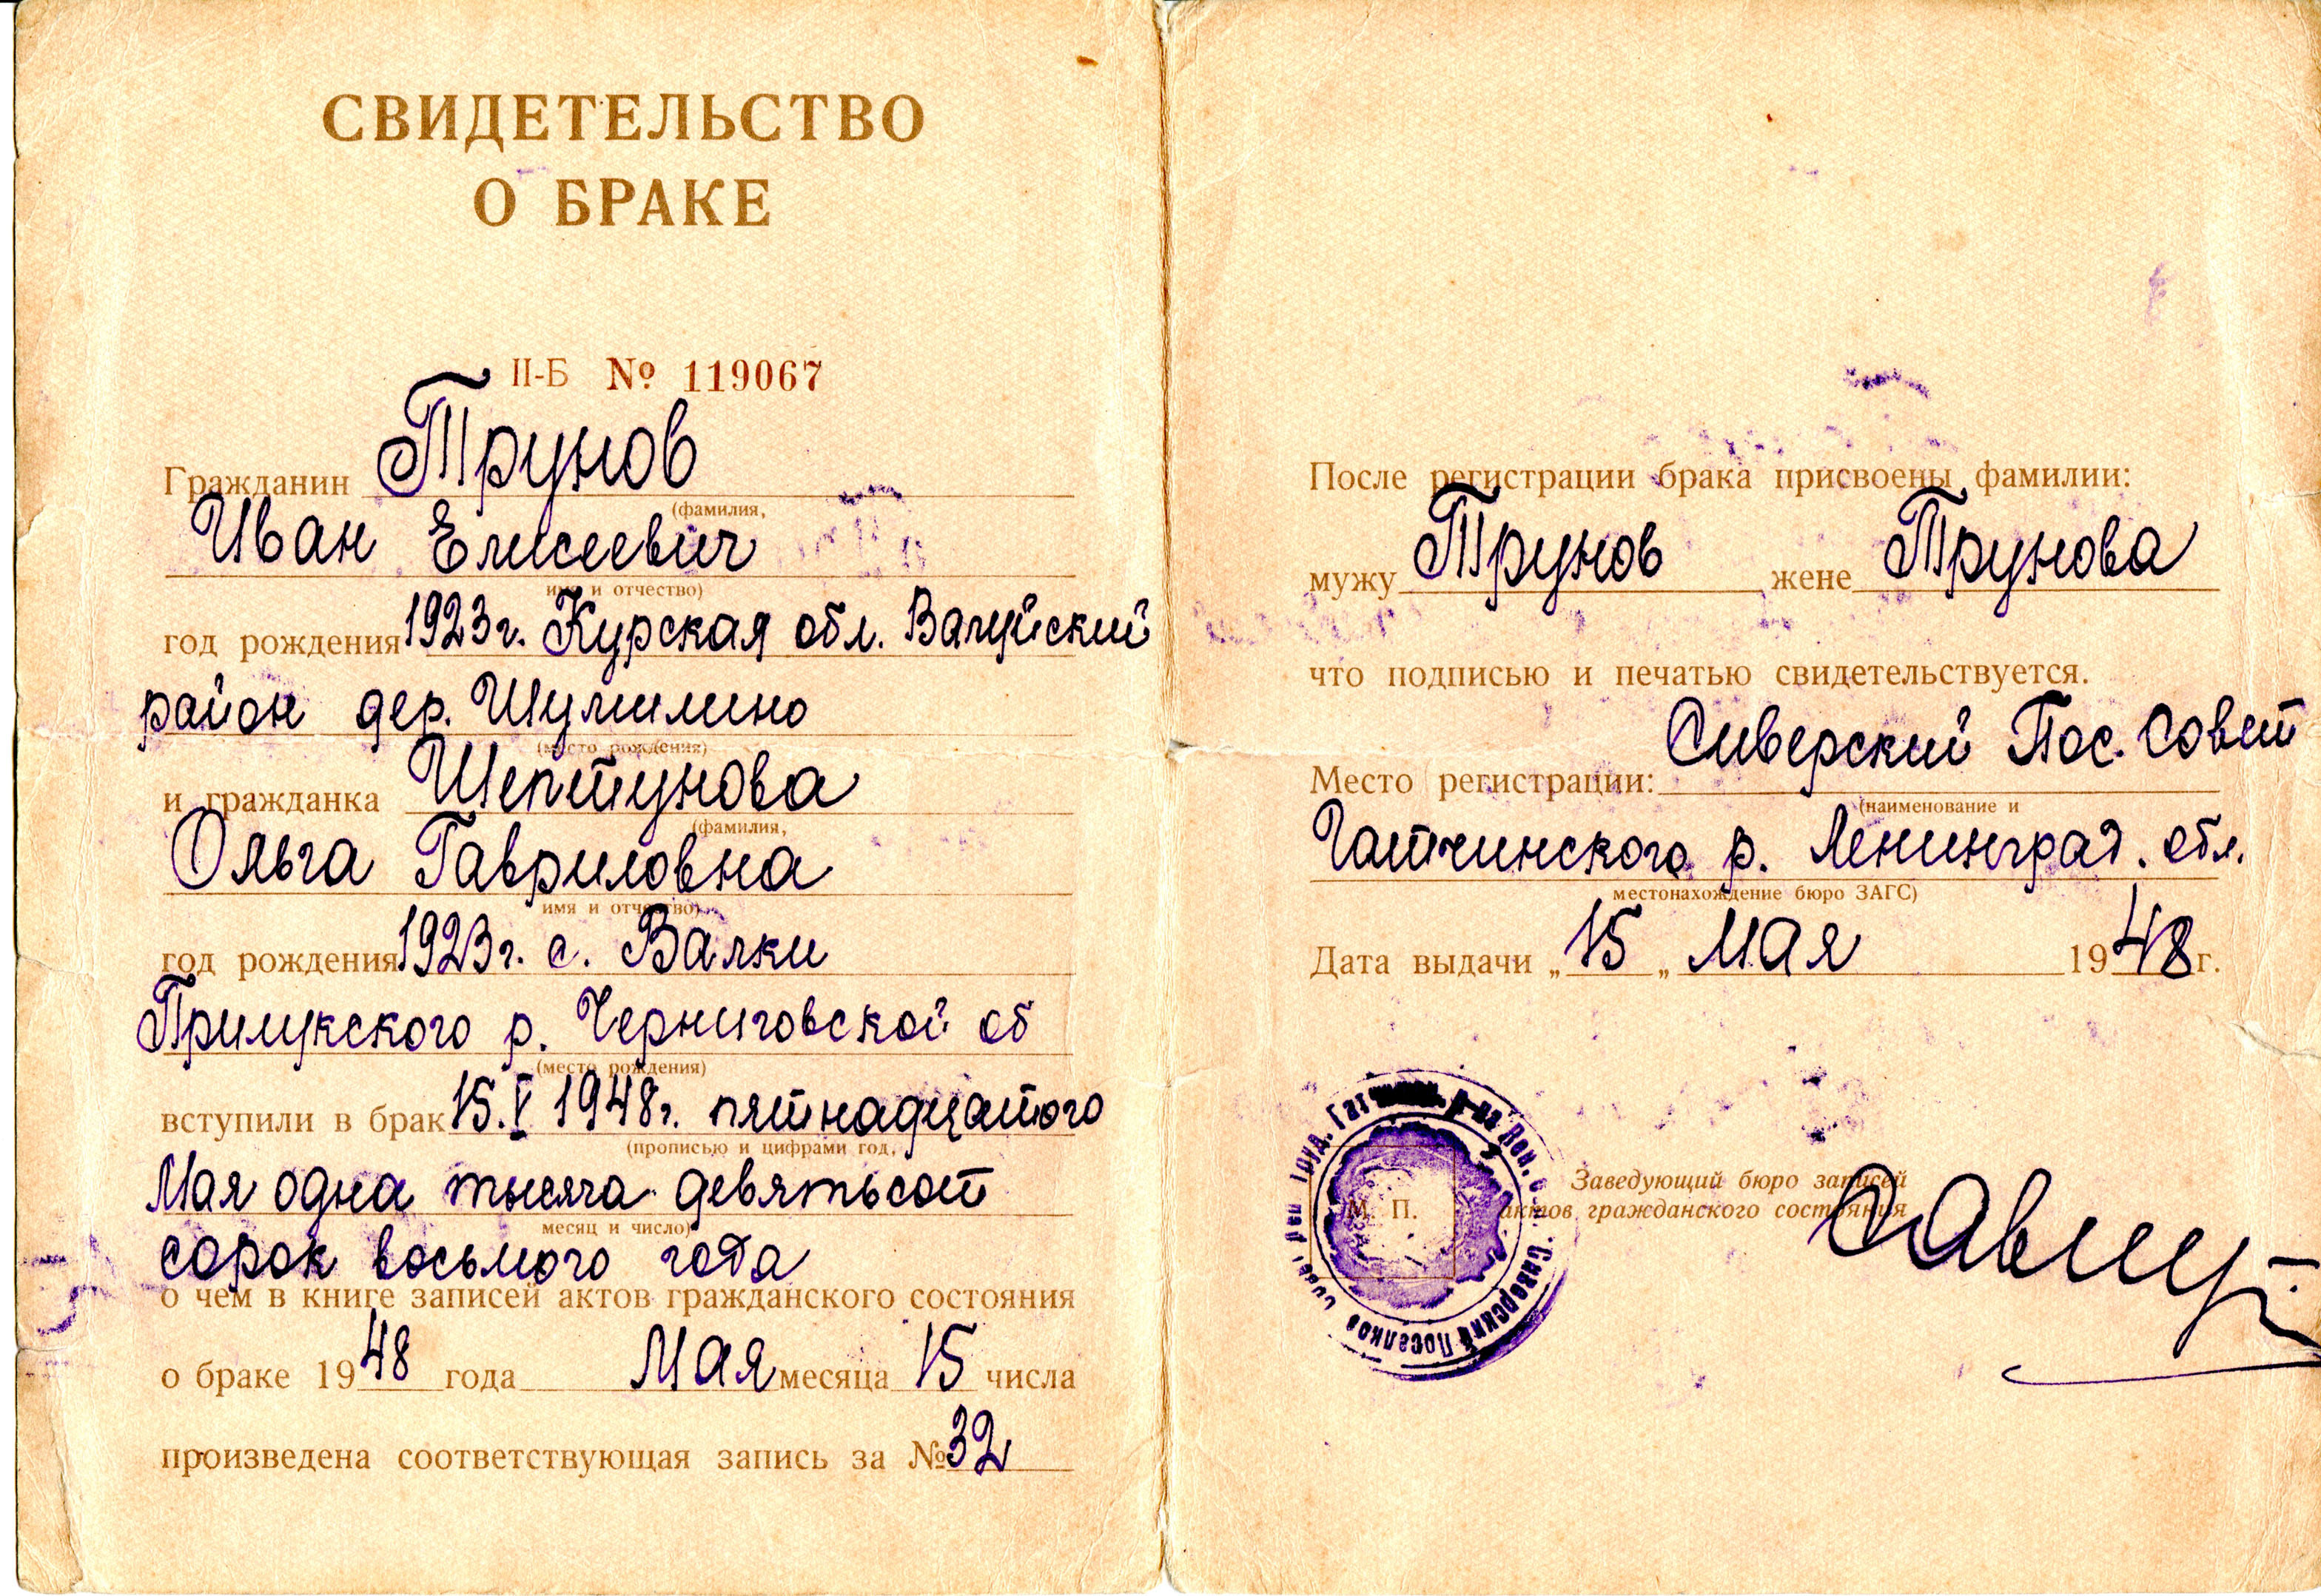 СВИДЕТЕЛЬСТВО
О БРАКЕ
II-Б № 119067
Гражданин Трунов
(фамилия,
Иван Елисеевич
имя и отчество)
год рождения 1923г. Курская обл. Валуйский
район дер. Шумилино
(место рождения)
и гражданка Шептунова
(фамилия,
Ольга Гавриловна
имя и отчество)
год рождения 1923г. с. Валки
Прилукского р. Черниговской об
(место рождения)
вступили в брак 15.V 1948г. пятнадцатого
(прописью и цифрами год,
Мая одна тысяча девятьсот
месяц и число)
сорок восьмого года
о чем в книге записей актов гражданского состояния
о браке 1948 года Мая месяца 15 числа
произведена соответствующая запись за № 32
После регистрации брака присвоены фамилии:
мужу Трунов жене Трунова
что подписью и печатью свидетельствуется.
Место регистрации: Сиверский Пос. Совет
(наименование и
Гатчинского р. Ленинград. обл.
местонахождение бюро ЗАГС)
Дата выдачи „15„ Мая 1948г.
М. П.
Заведующий бюро записей
актов гражданского состояния
Сиверский Поселков